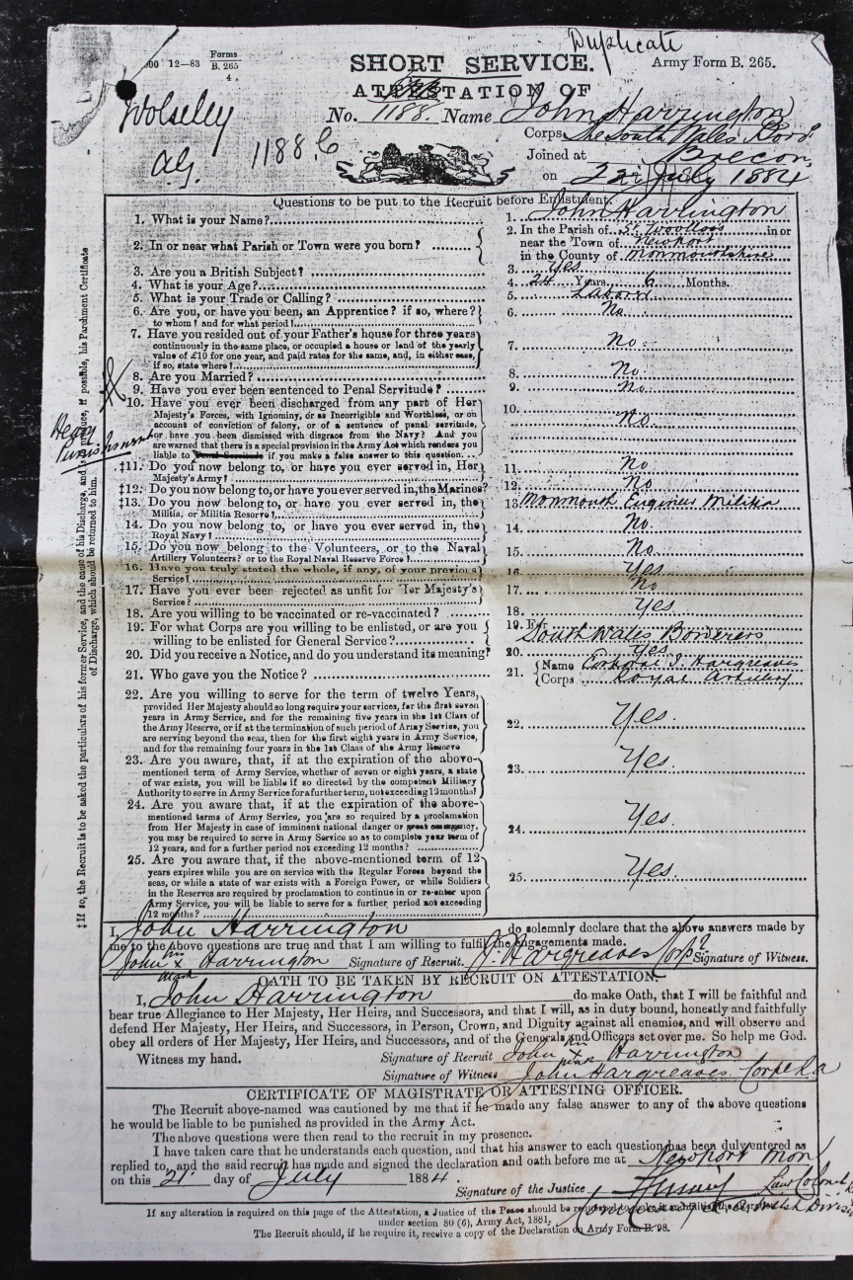 Duplicate
500 12-83 Forms B. 265 4.
SHORT SERVICE.
Army Form B. 265.
ATTESTATION OF
No. 1188. Name John Harrington
Wolseley
AG.
1188. C
Corps The South Wales Bord.
Joined at Brecon,
on 22nd July 1884
Questions to be put to the Recruit before Enlistment.
1. What is your Name? 1. John Harrington
2. In or near what Parish or Town were you born? 2. In the Parish of St. Woollos in or
near the Town of Newport
in the County of Monmouthshire
3. Are you a British Subject? 3. Yes
4. What is your Age? 4. 24 Years 6 Months.
5. What is your Trade or Calling? 5. Laborer
6. Are you, or have you been, an Apprentice? if so, where? 6. No.
to whom? and for what period?
7. Have you resided out of your Father's house for three years
continuously in the same place, or occupied a house or land of the yearly
value of £10 for one year, and paid rates for the same, and, in either case,
if so, state where? 7. No.
8. Are you Married? 8. No.
9. Have you ever been sentenced to Penal Servitude? 9. No.
10. Have you ever been discharged from any part of Her
Majesty's Forces, with Ignominy, or as Incorrigible and Worthless, or on
account of conviction of felony, or of a sentence of penal servitude,
or have you been dismissed with disgrace from the Navy? And you
are warned that there is a special provision in the Army Act which renders you
liable to Penal Servitude if you make a false answer to this question. 10. No.
Heavy
Punishment
‡11. Do you now belong to, or have you ever served in, Her
Majesty's Army? 11. No
‡12. Do you now belong to, or have you ever served in, the Marines? 12. No
‡13. Do you now belong to, or have you ever served in, the
Militia, or Militia Reserve? 13 Monmouth Engineer Militia
14. Do you now belong to, or have you ever served in, the
Royal Navy? 14. No.
15. Do you now belong to the Volunteers, or to the Naval
Artillery Volunteers? or to the Royal Naval Reserve Force? 15. No.
16. Have you truly stated the whole, if any, of your previous
Service? 16. Yes
17. Have you ever been rejected as unfit for Her Majesty's
Service? 17. No
18. Are you willing to be vaccinated or re-vaccinated? 18. Yes.
19. For what Corps are you willing to be enlisted, or are you
willing to be enlisted for General Service? 19. For South Wales Borderers
20. Did you receive a Notice, and do you understand its meaning? 20. Yes
21. Who gave you the Notice? 21. Name Corporal J. Hargreaves
Corps Royal Artillery
22. Are you willing to serve for the term of twelve Years,
provided Her Majesty should so long require your services, for the first seven
years in Army Service, and for the remaining five years in the 1st Class of
the Army Reserve, or if at the termination of such period of Army Service, you
are serving beyond the seas, then for the first eight years in Army Service,
and for the remaining four years in the 1st Class of the Army Reserve 22. Yes.
23. Are you aware, that, if at the expiration of the above-
mentioned term of Army Service, whether of seven or eight years, a state
of war exists, you will be liable if so directed by the competent Military
Authority to serve in Army Service for a further term, not exceeding 12 months? 23. Yes.
24. Are you aware that, if at the expiration of the above-
mentioned terms of Army Service, you are so required by a proclamation
from Her Majesty in case of imminent national danger or great emergency,
you may be required to serve in Army Service so as to complete your term of
12 years, and for a further period not exceeding 12 months? 24. Yes.
25. Are you aware that, if the above-mentioned term of 12
years expires while you are on service with the Regular Forces beyond the
seas, or while a state of war exists with a Foreign Power, or while Soldiers
in the Reserves are required by proclamation to continue in or re-enter upon
Army Service, you will be liable to serve for a further period not exceeding
12 months? 25. Yes.
‡If so, the Recruit is to be asked the particulars of his former Service, and the cause of his Discharge, and is to produce, if possible, his Parchment Certificate
of Discharge, which should be returned to him.
I, John Harrington do solemnly declare that the above answers made by
me to the above questions are true and that I am willing to fulfil the engagements made.
John his x mark Harrington Signature of Recruit. J. Hargreaves Corpl Signature of Witness.
OATH TO BE TAKEN BY RECRUIT ON ATTESTATION.
I, John Harrington do make Oath, that I will be faithful and
bear true Allegiance to Her Majesty, Her Heirs, and Successors, and that I will, as in duty bound, honestly and faithfully
defend Her Majesty, Her Heirs, and Successors, in Person, Crown, and Dignity against all enemies, and will observe and
obey all orders of Her Majesty, Her Heirs, and Successors, and of the Generals and Officers set over me. So help me God.
Witness my hand. Signature of Recruit John his x mark Harrington
Signature of Witness John Hargreaves Corpl Ra
CERTIFICATE OF MAGISTRATE OR ATTESTING OFFICER.
The Recruit above-named was cautioned by me that if he made any false answer to any of the above questions
he would be liable to be punished as provided in the Army Act.
The above questions were then read to the recruit in my presence.
I have taken care that he understands each question, and that his answer to each question has been duly entered as
replied to, and the said recruit has made and signed the declaration and oath before me at Newport Mon
on this 21 day of July 1884.
Signature of the Justice Lieut Colonel
If any alteration is required on this page of the Attestation, a Justice of the Peace should be requested to make it
under section 80 (6), Army Act, 1881,
The Recruit should, if he require it, receive a copy of the Declaration on Army Form B. 98.